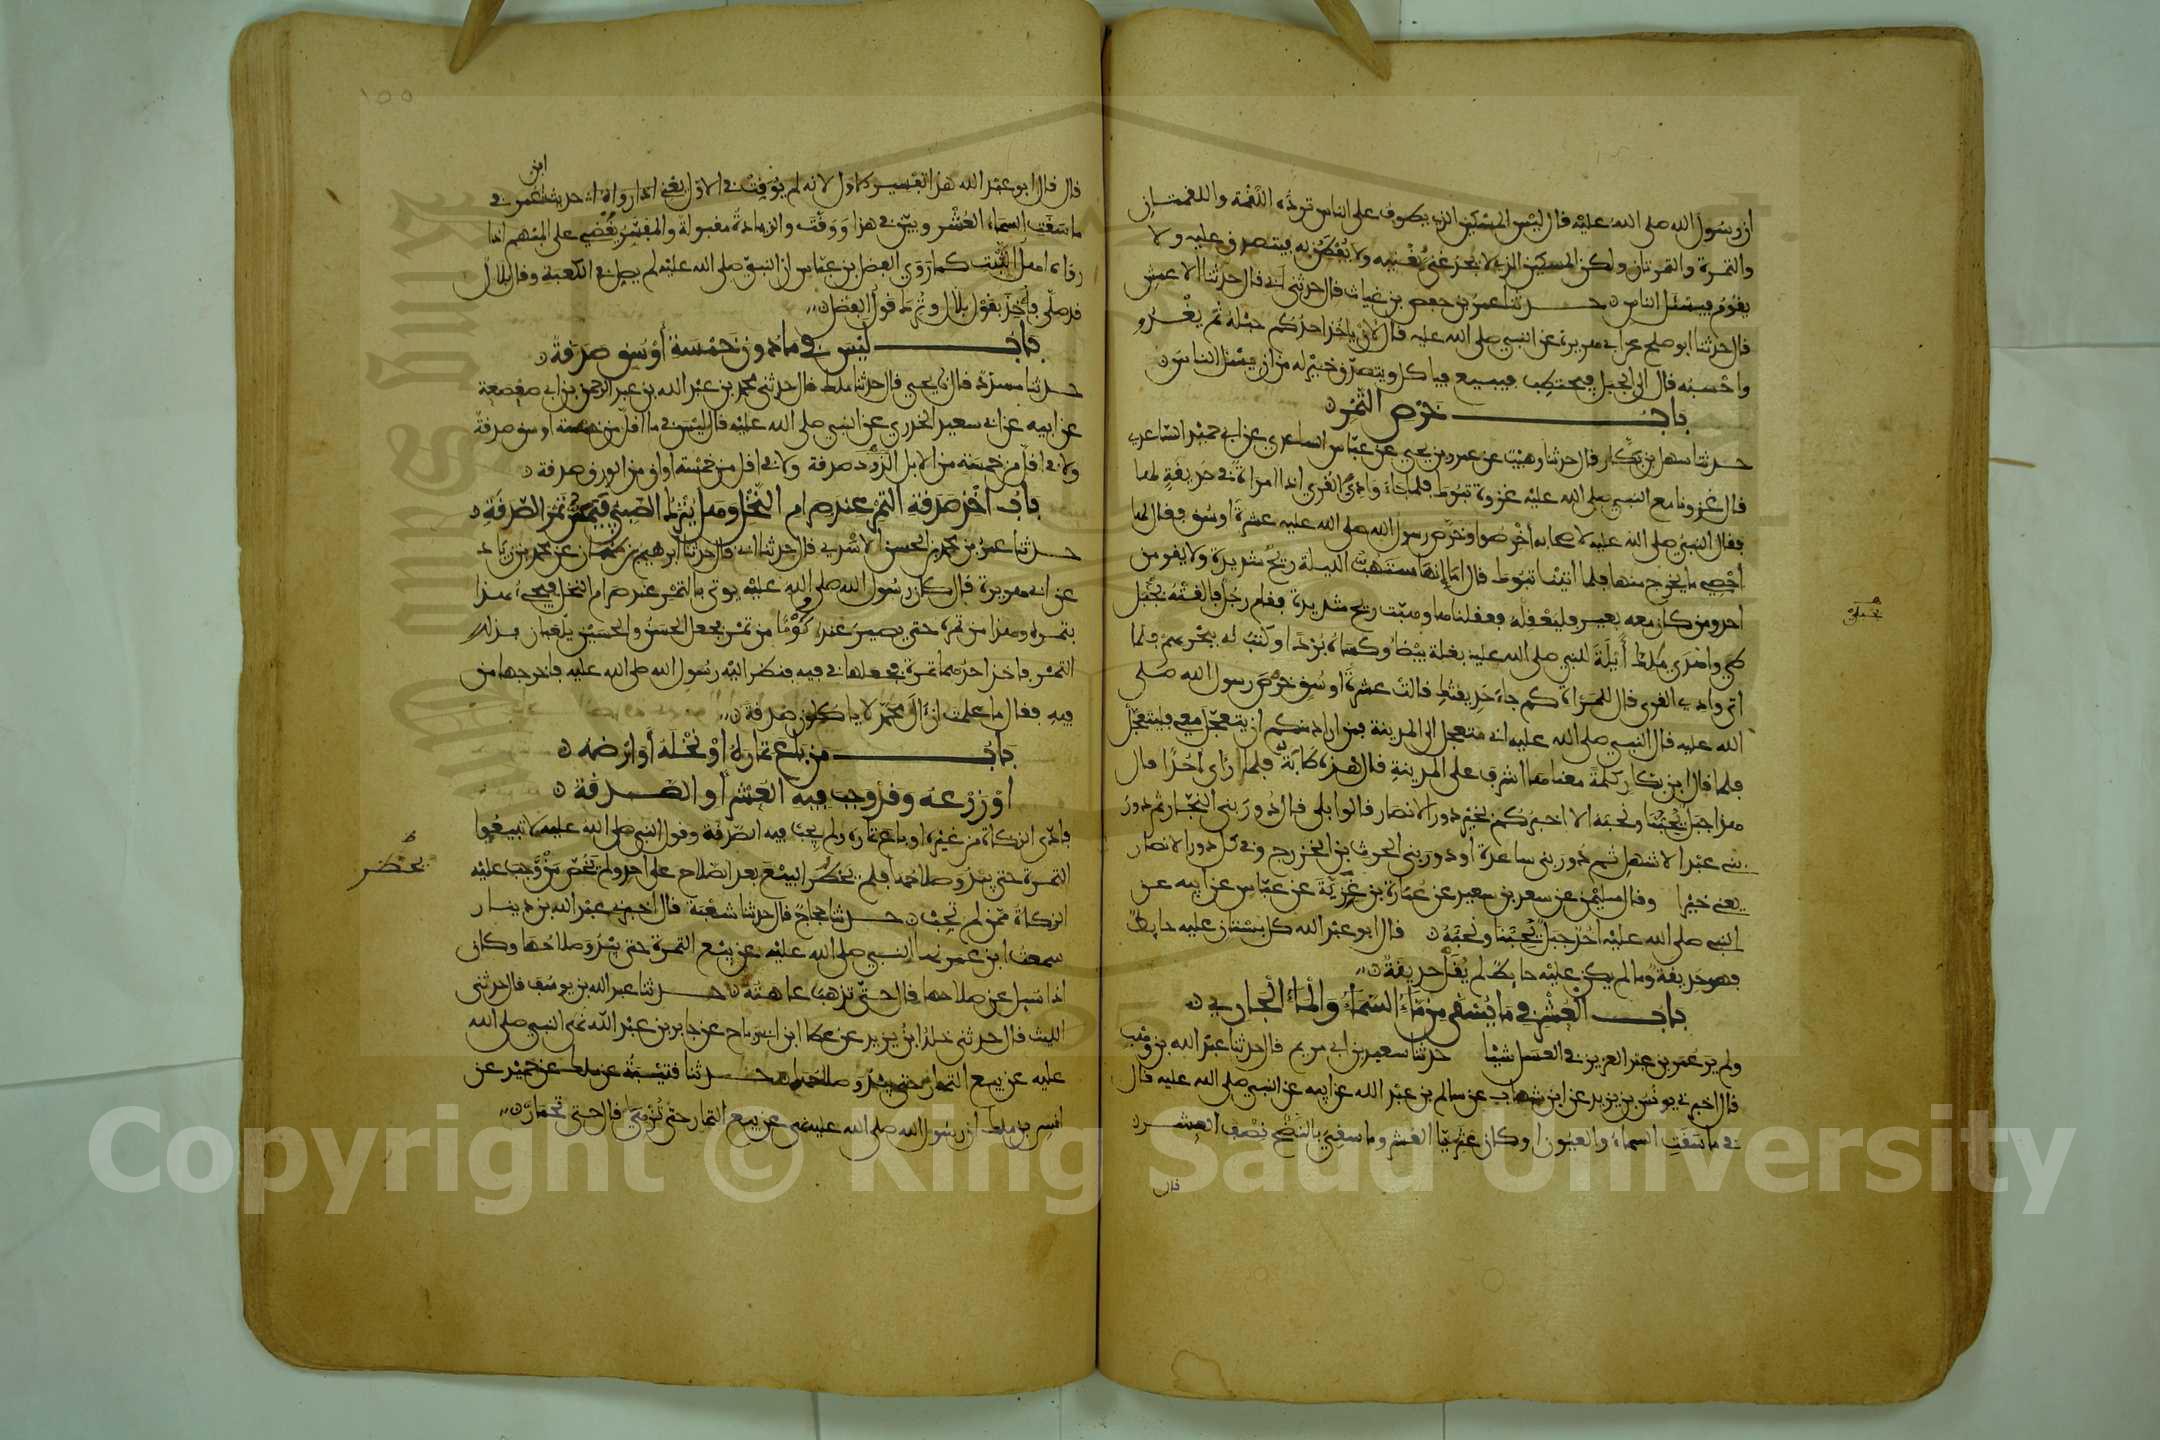 ان رسول الله صلى الله عليه قال ليس المسكين الذي يطوف على الناس ترده اللقمة واللقمتان
والتمرة والتمرتان ولكن المسكين الذي لا يجد غنى يغنيه ولا يفطن به فيتصدق عليه ولا
يقوم فيسئل الناس حدثنا عمر بن حفص بن غياث قال حدثني ابي قال حدثنا الاعمش
قال حدثنا ابو صلح عن ابي هريرة عن النبي صلى الله عليه قال لان ياخذ احدكم حبله ثم يغدو
واحسبه قال الى الجبل فيحتطب فيبيع فياكل ويتصدق خير له من ان يسئل الناس
باب خرص التمر
حدثنا سهل بن بكار قال حدثنا وهيب عن عمرو بن يحيى عن عباس الساعدي عن ابي حميد الساعدي
قال غزونا مع النبي صلى الله عليه غزوة تبوك فلما جاء وادي القرى اذا امراة في حديقة لها
فقال النبي صلى الله عليه لاصحابه اخرصوا وخرص رسول الله صلى الله عليه عشرة اوسق فقال لها
احصي ما يخرج منها فلما اتينا تبوك قال اما انها ستهب الليلة ريح شديدة ولا يقومن
احد ومن كان معه بعير فليعقله فعقلناها وهبت ريح شديدة فقام رجل فالقته بجبل
طي واهدى ملك أيلة للنبي صلى الله عليه بغلة بيضا وكساه بردا وكتب له ببحرهم فلما
اتى وادي القرى قال للمراة كم جاء حديقتك قالت عشرة اوسق خرص رسول الله صلى
الله عليه قال النبي صلى الله عليه اني متعجل الى المدينة فمن اراد منكم ان يتعجل معي فليتعجل
فلما قال ابن بكار كلمة معناها اشرف على المدينة قال هذه طابة فلما راى احدا قال
هذا جبل يحبنا ونحبه الا اخبركم بخير دور الانصار قالوا بلى قال دور بني النجار ثم دور
بني عبد الاشهل ثم دور بني ساعدة او دور بني الحرث بن الخزرج وفي كل دور الانصار
يعني خيرا وقال سليمن عن سعد بن سعيد عن عمارة بن غزية عن عباس عن ابيه عن
النبي صلى الله عليه احد جبل يحبنا ونحبه قال ابو عبد الله كل بستان عليه حايط
فهو حديقة وما لم يكن عليه حايط لم يقل حديقة
باب العشر في ما يسقى من ماء السماء والماء الجاري
ولم ير عمر بن عبد العزيز في العسل شيا حدثنا سعيد بن ابي مريم قال حدثنا عبد الله بن وهب
قال اخبرني يونس بن يزيد عن ابن شهاب عن سالم بن عبد الله عن ابيه عن النبي صلى الله عليه قال
في ما سقت السماء والعيون او كان عثريا العشر وما سقي بالنضح نصف العشر
قال
بجبلي
١٥٥
ابن
قال قال ابو عبد الله هذا تفسير الاول لانه لم يوقت في الاول يعني حديث عمر في
ما سقت السماء العشر وبين في هذا ووقت والزيادة مقبولة والمفسر يقضي على المبهم اذا
رواه اهل الثبت كما روى الفضل بن عباس ان النبي صلى الله عليه لم يصل في الكعبة وقال بلال
قد صلى فاخذ بقول بلال وترك قول الفضل
باب ليس في ما دون خمسة أوسق صدقة
حدثنا مسدد قال يحيى قال حدثنا ملك قال حدثني محمد بن عبد الله بن عبد الرحمن بن ابي صعصعة
عن ابيه عن ابي سعيد الخدري عن النبي صلى الله عليه قال ليس في ما اقل من خمسة اوسق صدقة
ولا في اقل من خمسة من الابل الذود صدقة ولا في اقل من خمسة اواق من الورق صدقة
باب اخذ صدقة التمر عند صرام النخل وهل يترك الصبي فيمس تمر الصدقة
حدثنا عمر بن محمد بن الحسن الاسدي قال حدثنا ابي قال حدثنا ابرهيم بن طهمان عن محمد بن زياد
عن ابي هريرة قال كان رسول الله صلى الله عليه يوتى بالتمر عند صرام النخل فيجيء هذا
بتمره وهذا من تمره حتى يصير عنده كوما من تمر فجعل الحسن والحسين يلعبان بذلك
التمر فاخذ احدهما تمرة فجعلها في فيه فنظر اليه رسول الله صلى الله عليه فاخرجها من
فيه فقال ما علمت ان آل محمد لا ياكلون صدقة
باب من باع ثماره او نخله أو ارضه
او زرعه وقد وجب فيه العشر أو الصدقة
فادى الزكاة من غيره او باع ثماره ولم يجب فيه الصدقة وقول النبي صلى الله عليه لا تبيعوا
التمرة حتى يبدو صلاحها فلم يحظر البيع بعد الصلاح على احد ولم يخص من وجب عليه
الزكاة ممن لم تجب حدثنا حجاج قال حدثنا شعبة قال اخبرني عبد الله بن دينار
سمعت ابن عمر نهى النبي صلى الله عليه عن بيع التمرة حتى يبدو صلاحها وكان
اذا سيل عن صلاحها قال حتى تذهب عاهته حدثنا عبد الله بن يوسف قال حدثني
الليث قال حدثني خلد بن يزيد عن عطا ابن ابي رباح عن جابر بن عبد الله نهى النبي صلى الله
عليه عن بيع الثمار حتى يبدو صلاحها حدثنا قتيبة عن ملك عن حميد عن
انس بن ملك ان رسول الله صلى الله عليه نهى عن بيع الثمار حتى تزهي قال حتى تحمار
يحظر
Copyright © King Saud University